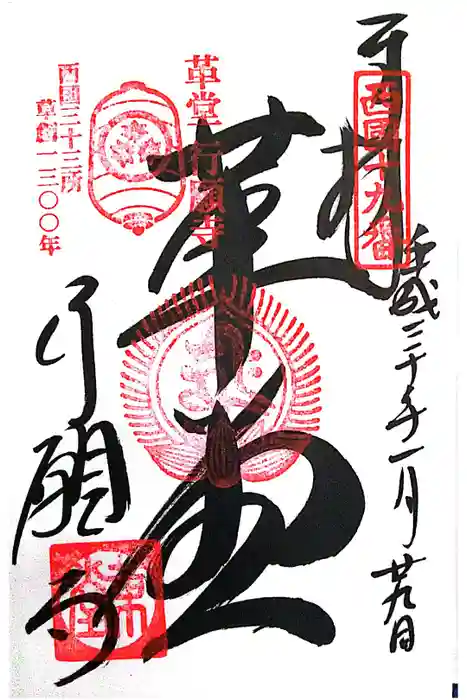 奉拝
西国十九番
平成三十年一月廿九日
革堂
革堂 行願寺
西国三十三所
草創一三〇〇年
行願寺